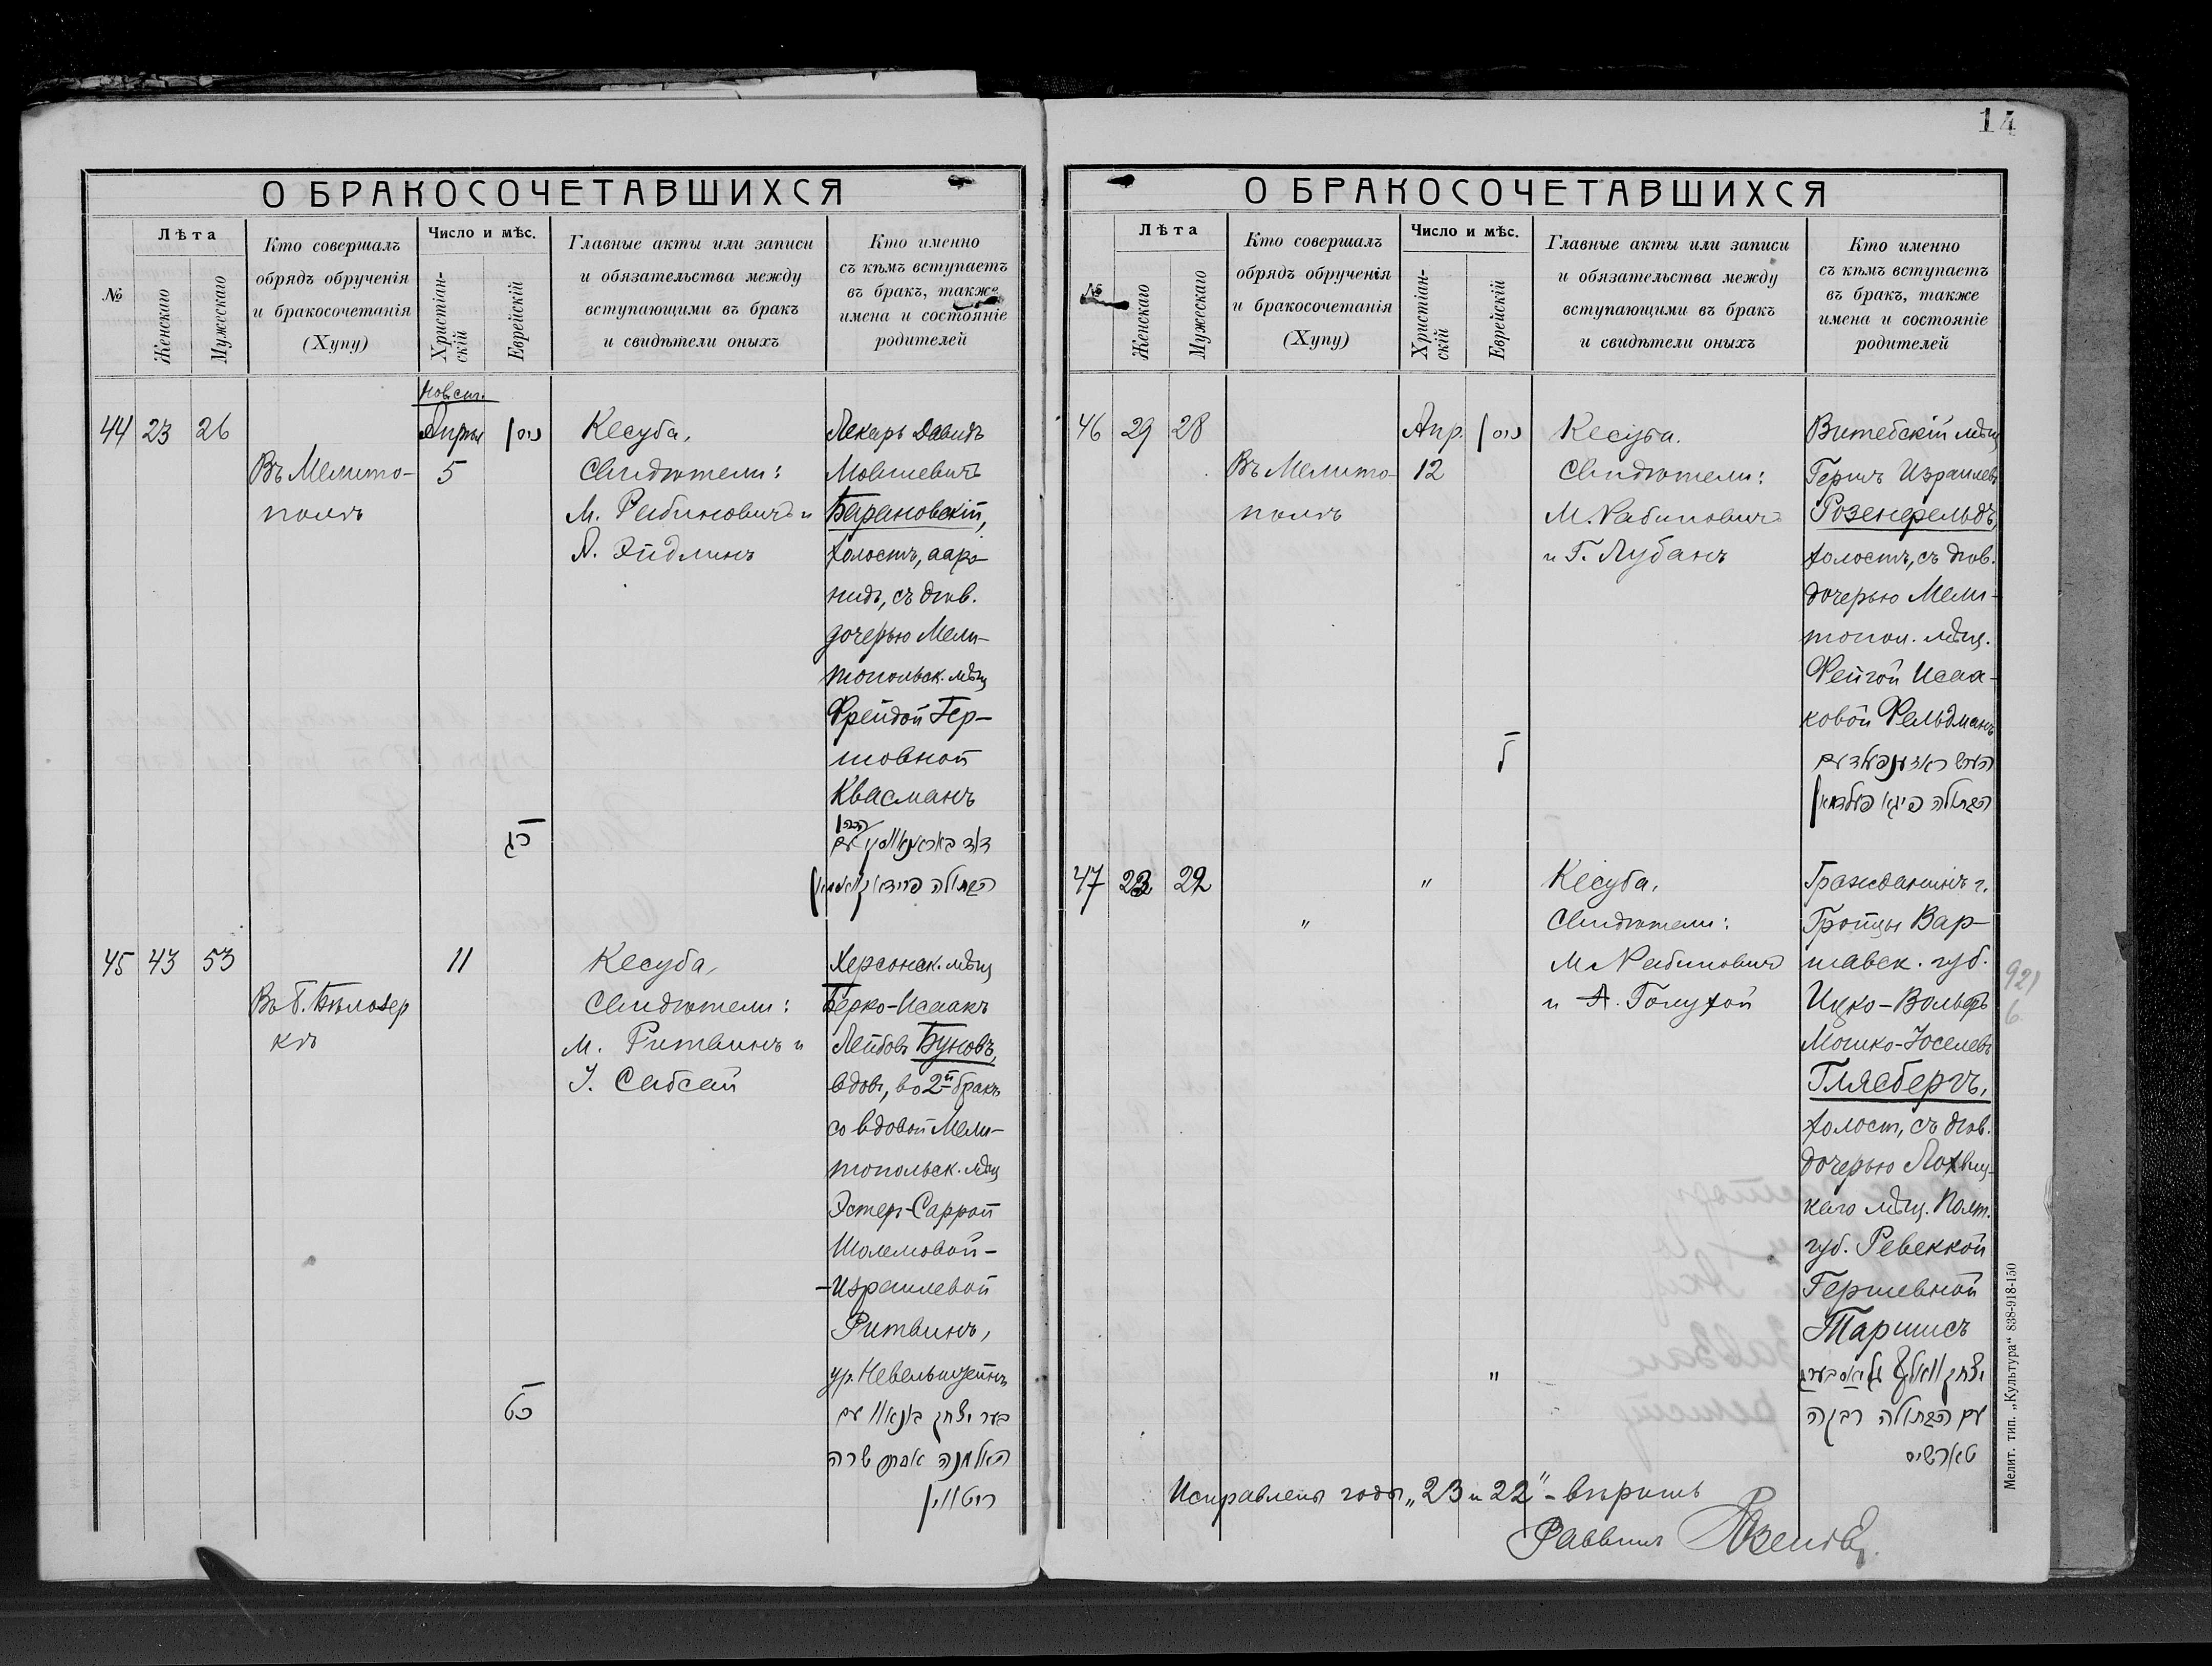 14
О БРАКОСОЧЕТАВШИХСЯ
№
Лѣта
Женскаго
Мужескаго
Кто совершалъ
обрядъ обрученія
и бракосочетанія
(Хупу)
Число и мѣс.
Христіан-
скій
Еврейскій
Главные акты или записи
и обязательства между
вступающими въ бракъ
и свидѣтели оныхъ
Кто именно
съ кѣмъ вступаетъ
въ бракъ, также
имена и состояніе
родителей
Нов. ст.
44 23 26
Въ Мелито-
полѣ
5
ניסן
כג
Кесуба,
Свидѣтели:
М. Рабиновичъ и
Эйдлинъ
Лекарь Давидъ
Мовшевичъ
Барановскій,
холостъ, ааро-
нидъ, съ дѣв.
дочерью Мели-
топольск. мѣщ
Фрейдой Гер-
шовной
Квасманъ
הכהן
דוד באראנאווסקי עם
הבתולה פריידא קוואסמאן
45 43 53
Въ Б. Бѣлозер
кѣ
11
כט
Кесуба,
Свидѣтели:
М. Ритвинъ и
Сабсай
Херсонск. мѣщ
Берко-Исаакъ
Лейбовъ Буновъ,
вдов., во 2й бракъ
со вдовой Мели-
топольск. мѣщ
Эстер-Саррой
Шолемовой-
-Израилевой
Ритвинъ,
בער יצחק בונאוו עם
האלמנה אסתר שרה
ריטווין
О БРАКОСОЧЕТАВШИХСЯ
№
Лѣта
Женскаго
Мужескаго
Кто совершалъ
обрядъ обрученія
и бракосочетанія
(Хупу)
Число и мѣс.
Христіан-
скій
Еврейскій
Главные акты или записи
и обязательства между
вступающими въ бракъ
и свидѣтели оныхъ
Кто именно
съ кѣмъ вступаетъ
въ бракъ, также
имена и состояніе
родителей
46 29 28
Въ Мелито-
полѣ
Апр.
12
ניסן
ל
Кесуба.
Свидѣтели:
М. Рабиновичъ
и Г. Лубанъ
Витебскій мѣщ
Гершъ Израилевъ
Розенфельдъ,
холостъ, съ дѣв.
дочерью Мели-
топол. мѣщ.
Фейгой Исаа-
ковой Фельдманъ
הירש ראזענפעלד עם
הבתולה פייגא פעלדמאן
47 23 22
"
"
"
Кесуба,
Свидѣтели:
М. Рабиновичъ
и А. Голухой
Гражданинъ г.
Гройцы Вар-
шавск. губ.
Ицко-Вольфъ
Мошко-Іоселевъ
Глясбергъ,
холост, съ дѣв.
дочерью Лохвиц-
каго мѣщ. Полт.
губ. Ревеккой
Гершевной
Таршисъ
יצחק וואלף גליאסבערג
עם הבתולה רבקה
טארשיס
Исправлены годы „23 и 22" – вѣрить
Раввинъ
Мелит. тип. „Культура" 838-918-150